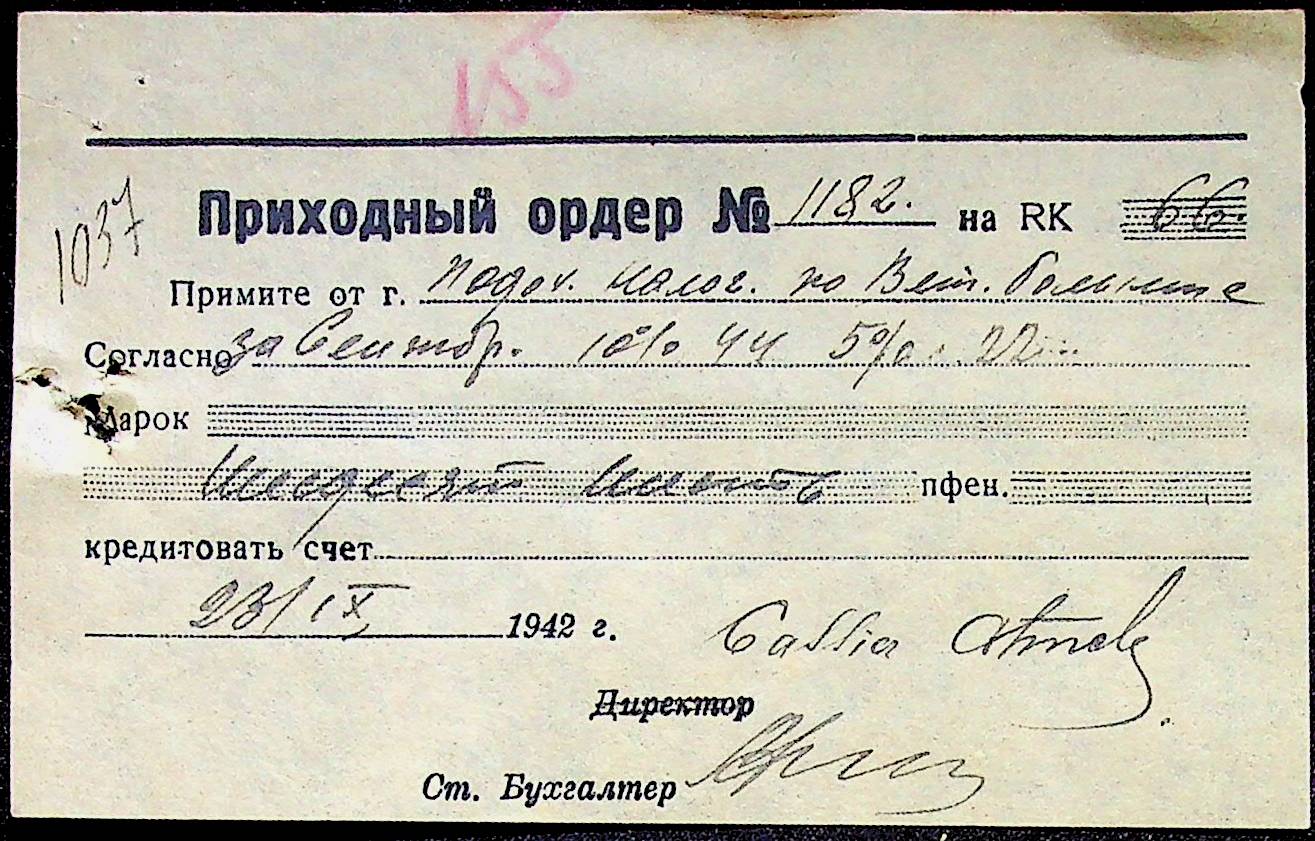 155
1037
Приходный ордер № 1182. на RK 66.
Примите от г. Подох. налог. по Вет. больнице
Согласно за Сентябр. 10% 44 5% 22
Марок
Шесдесят шесть пфен.
кредитовать счет
23/IX 1942 г.
Директор
Ст. Бухгалтер